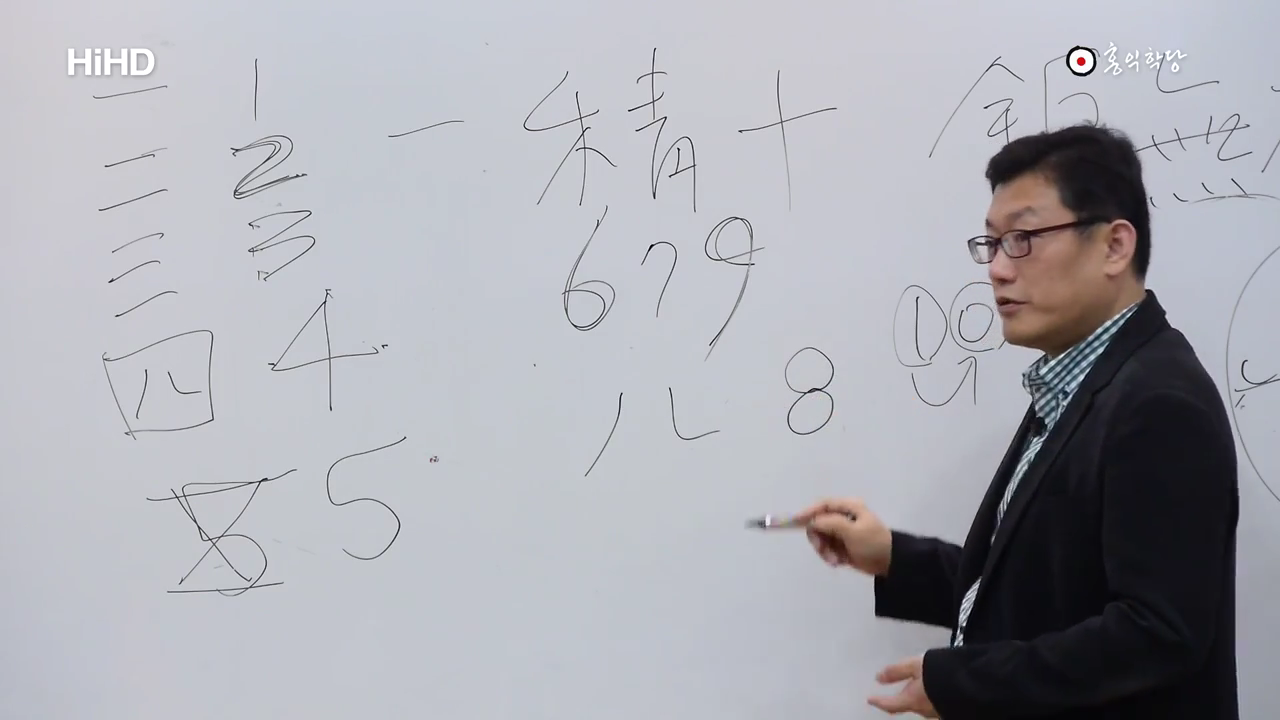 HiHD
홍익학당
一 1 一 精 十
二 2
三 3 6 7 9
四 4 八 8 1 0
5 5